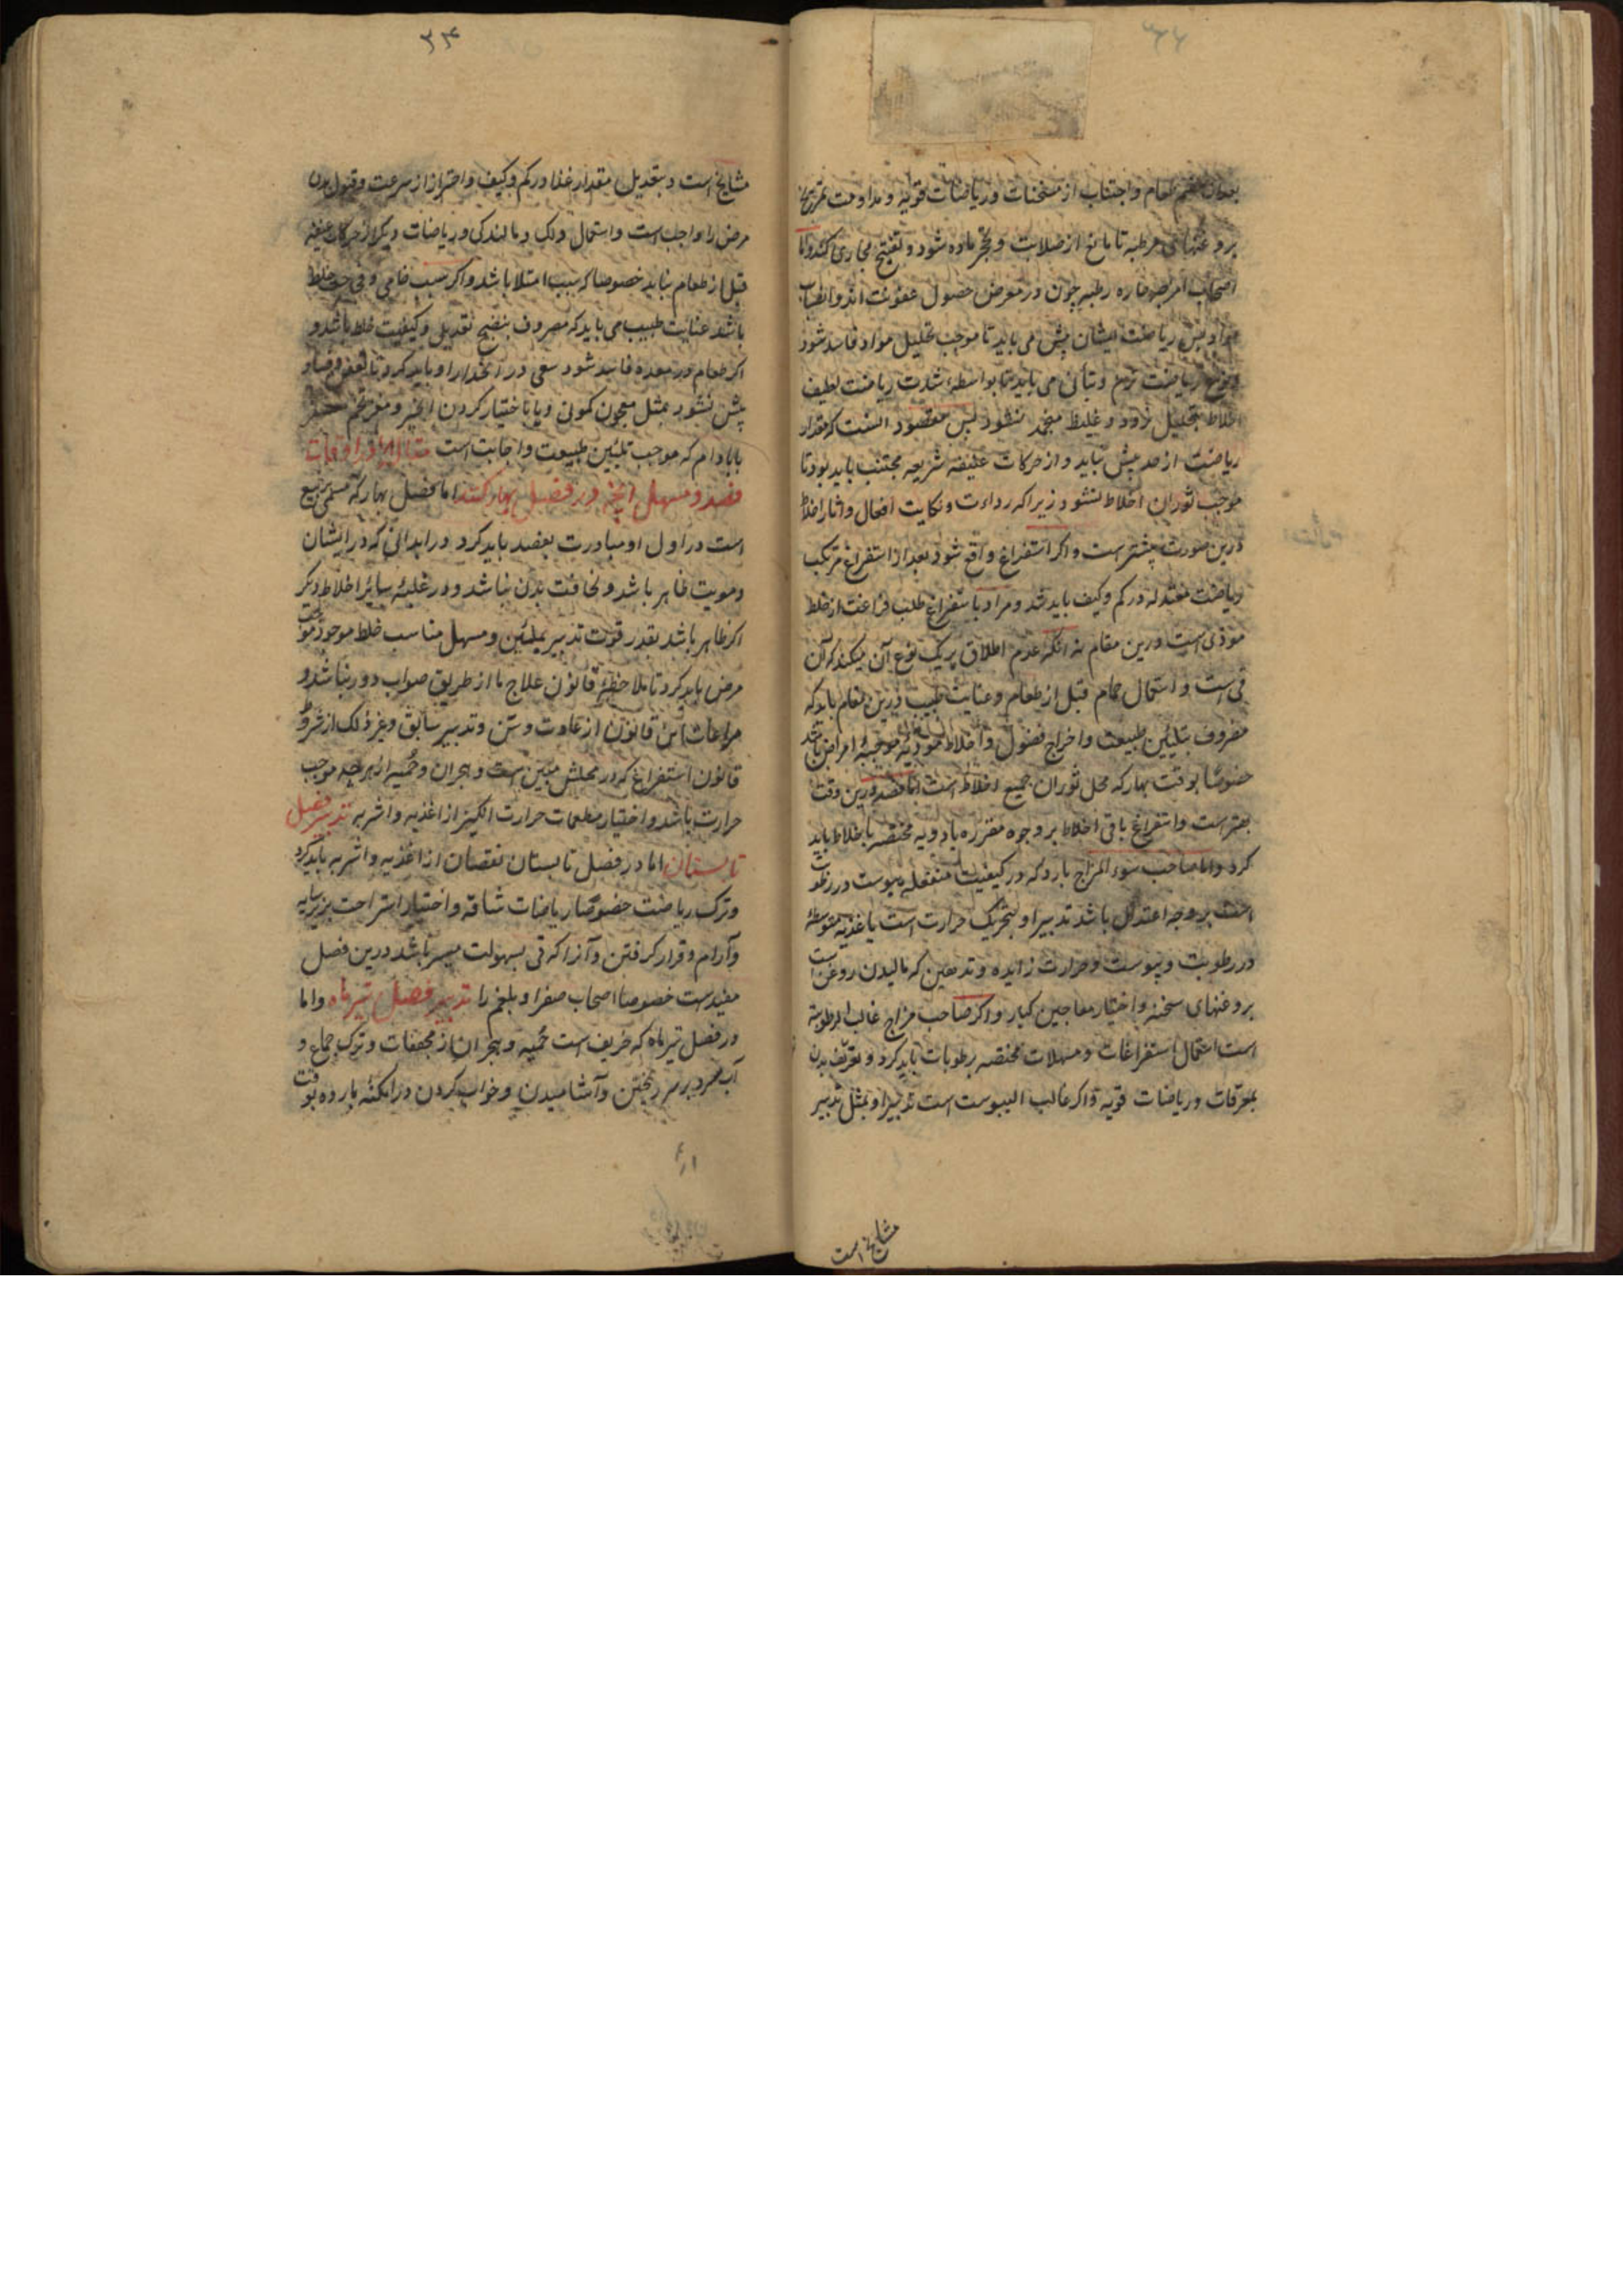 ۳۳
بعد از هضم طعام و اجتناب از مسخنات و ریاضات قویه و مداومت تمریخ
بروغنهای مرطبه تا مانع از صلابت و تحجر ماده شود و تفتیح مجاری کند و اما
اصحاب امراض حاره رطبه چون در معرض حصول عفونت اند و انصباب
مواد پس ریاضت ایشان پیش می باید تا موجب تحلیل مواد فاسد شود
ریاضت نرم و بتأنی می باید تا بواسطه شدت ریاضت لطیف
اخلاط بتحلیل نرود و غلیظ منجمد نشود پس مقصود آنست که مقدار
ریاضت از حد بیش نباید و از حرکات عنیفه سریعه مجتنب باید بود تا
موجب ثوران اخلاط نشود زیرا که رداءت و نکایت افعال و اثار اخلاط
درین صورت بیشترست و اکر استفراغ واقع شود بعد از استفراغ مرتکب
ریاضت معتدله در کم و کیف باید شد و مراد باستفراغ طلب فراغت از خلط
موذی است درین مقام نه آنکه عدم اطلاق بر یک نوع آن میکند که آن
قی است و استعمال حمام قبل از طعام و عنایت طبیب درین مقام باید که
مصروف بتلیین طبیعت و اخراج فضول و اخلاط موذیه موجبه امراض باشد
خصوصا بوقت بهار که محل ثوران جمیع اخلاط است اما فصد درین وقت
بهترست و استفراغ باقی اخلاط بر وجوه مقرره بادویه مختصه باخلاط باید
کرد و اما صاحب سوء المزاج بارد که در کیفیات منفعله یبوست و رطوبت
است بر وجه اعتدال باشد تدبیر او بتحریک حرارت است باغذیه متوسطه
در رطوبت و یبوست و حرارت زایده و تدهین که مالیدن روغن است
بروغنهای مسخنه و اختیار معاجین کبار و اکر صاحب مزاج غالب الرطوبة
است استعمال استفراغات و مسهلات مختصه برطوبات باید کرد و تعریق بدن
بمعرقات و ریاضات قویه و اکر غالب الیبوست است تدبیر او بمثل تدبیر
مشایخ است
۳۴
مشایخ است و بتعدیل مقدار غذا در کم و کیف و احتراز از سرعت و قبول بدن
مرض را واجب است و استعمال دلک و مالندکی و ریاضات و دیکر از حرکات عنیفه
قبل از طعام نباید خصوصا که بسبب امتلا باشد و اکر سبب خامی و فجاجت خلط
باشد عنایت طبیب می باید که مصروف بنضج تعدیل و کیفیت خلط باشد و
اکر طعام در معده فاسد شود سعی در انحدار او باید کرد تا تعفن و فساد
پیش نشود بمثل معجون کمونی و یا باختیار کردن انجیر و مغز تخم معصفر
یا بادام که موجب تلیین طبیعت و اجابت است
فصد و مسهل آنچه در فصل بهار کنند اما فصل بهار که مسمی بربیع
است در اول او مبادرت بفصد باید کرد در ابدانی که در ایشان
دمویت ظاهر باشد و نحافت بدن نباشد و در غلبه سایر اخلاط دیکر
اکر ظاهر باشد بقدر قوت تدبیر بملین و مسهل مناسب خلط موجود موجب
مرض باید کرد تا ملاحظه قانون علاج ما از طریق صواب دور نباشد و
مراعات این قانون از عادت و سن و تدبیر سابق و غیر ذلک از شروط
قانون استفراغ که در محلش مبین است و هجران و حمیه از هر چه موجب
حرارت باشد و اختیار مطعمات حرارت انکیز از اغذیه و اشربه تدبیر فصل
تابستان اما در فصل تابستان نقصان از اغذیه و اشربه باید کرد
و ترک ریاضت خصوصا ریاضات شاقه و اختیار استراحت بزیر سایه
و آرام و قرار کرفتن و آنرا که قی بسهولت میسر باشد درین فصل
مفیدست خصوصا اصحاب صفرا و بلغم را تدبیر فصل تیرماه و اما
در فصل تیرماه که خریف است حمیه و هجران از مجففات و ترک جماع و
آب سرد بر سر ریختن و آشامیدن و خواب کردن در امکنه بارده بوقت